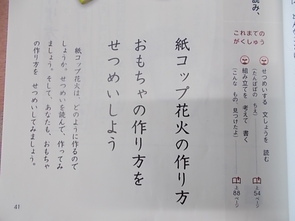 読み、
これまでの
がくしゅう
せつめいする 文しょうを 読む
(たんぽぽの ちえ)
上54ページ
組み立てを 考えて 書く
(こんな もの、見つけたよ)
上68ページ
紙コップ花火の作り方
おもちゃの作り方を
せつめいしよう
紙コップ花火は、どのように作るので
しょうか。せつめいを読んで、作ってみ
ましょう。そして、あなたも、おもちゃ
の作り方を せつめいしてみましょう。
41